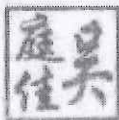 吴
庭佳